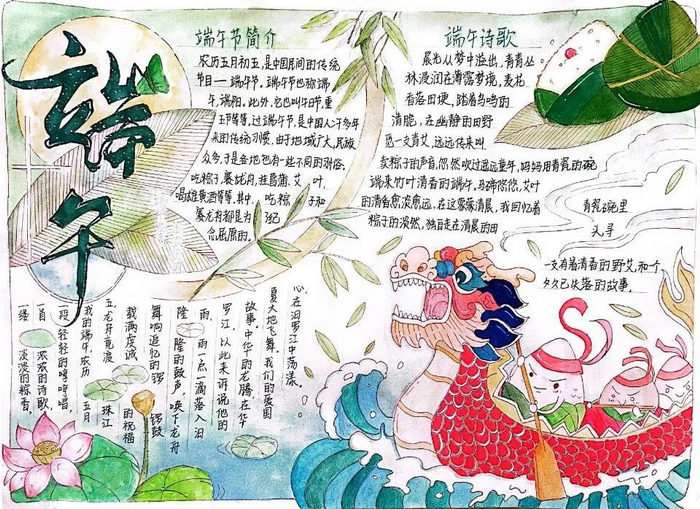 端午
端午节简介
农历五月初五,是中国民间的传统
节日——端午节。端午节也称端
午,端阳。此外,它也叫午日节,重
五节等等,过端午节,是中国人二千多年
来的传统习惯,由于地域广大,民族
众多,于是各地也有一些不同的习俗。
吃粽子,赛龙舟,挂菖蒲、艾叶,
喝雄黄酒等等,其中,吃粽子和
赛龙舟都是为了纪
念屈原的。
端午诗歌
晨忽从梦中溢出,青青丛
林浸润在薄雾梦境,麦花
香落田埂,踏着鸟鸣的
清脆,在幽静的田野
觅一支青艾,远远传来叫
卖粽子的声音,悠然吹过遥远童年,妈妈用青瓷的碗
端来竹叶清香的端午,马蹄悠悠,艾叶
的清香愈淡愈远,在这雾落清晨,我回忆着
粽子的淡然,独自走在清晨的田
青瓷碗里
久寻
一支有着清香的野艾,和一个
久久已失落的故事.
一缕 淡淡的粽香,
一首 浓浓的诗歌,
一段轻轻的哼唱,
我的端午,农历 五月
五,龙舟竞渡 珠江
载满虔诚 的祝福
舞响追忆的锣 锣鼓
隆隆的鼓声,唤下龙舟
雨,雨一点一滴落入汨
罗江,以此来诉说他的
故事,中华的龙腾在华
夏大地飞舞,我们的爱国
心在汨罗江中荡漾。